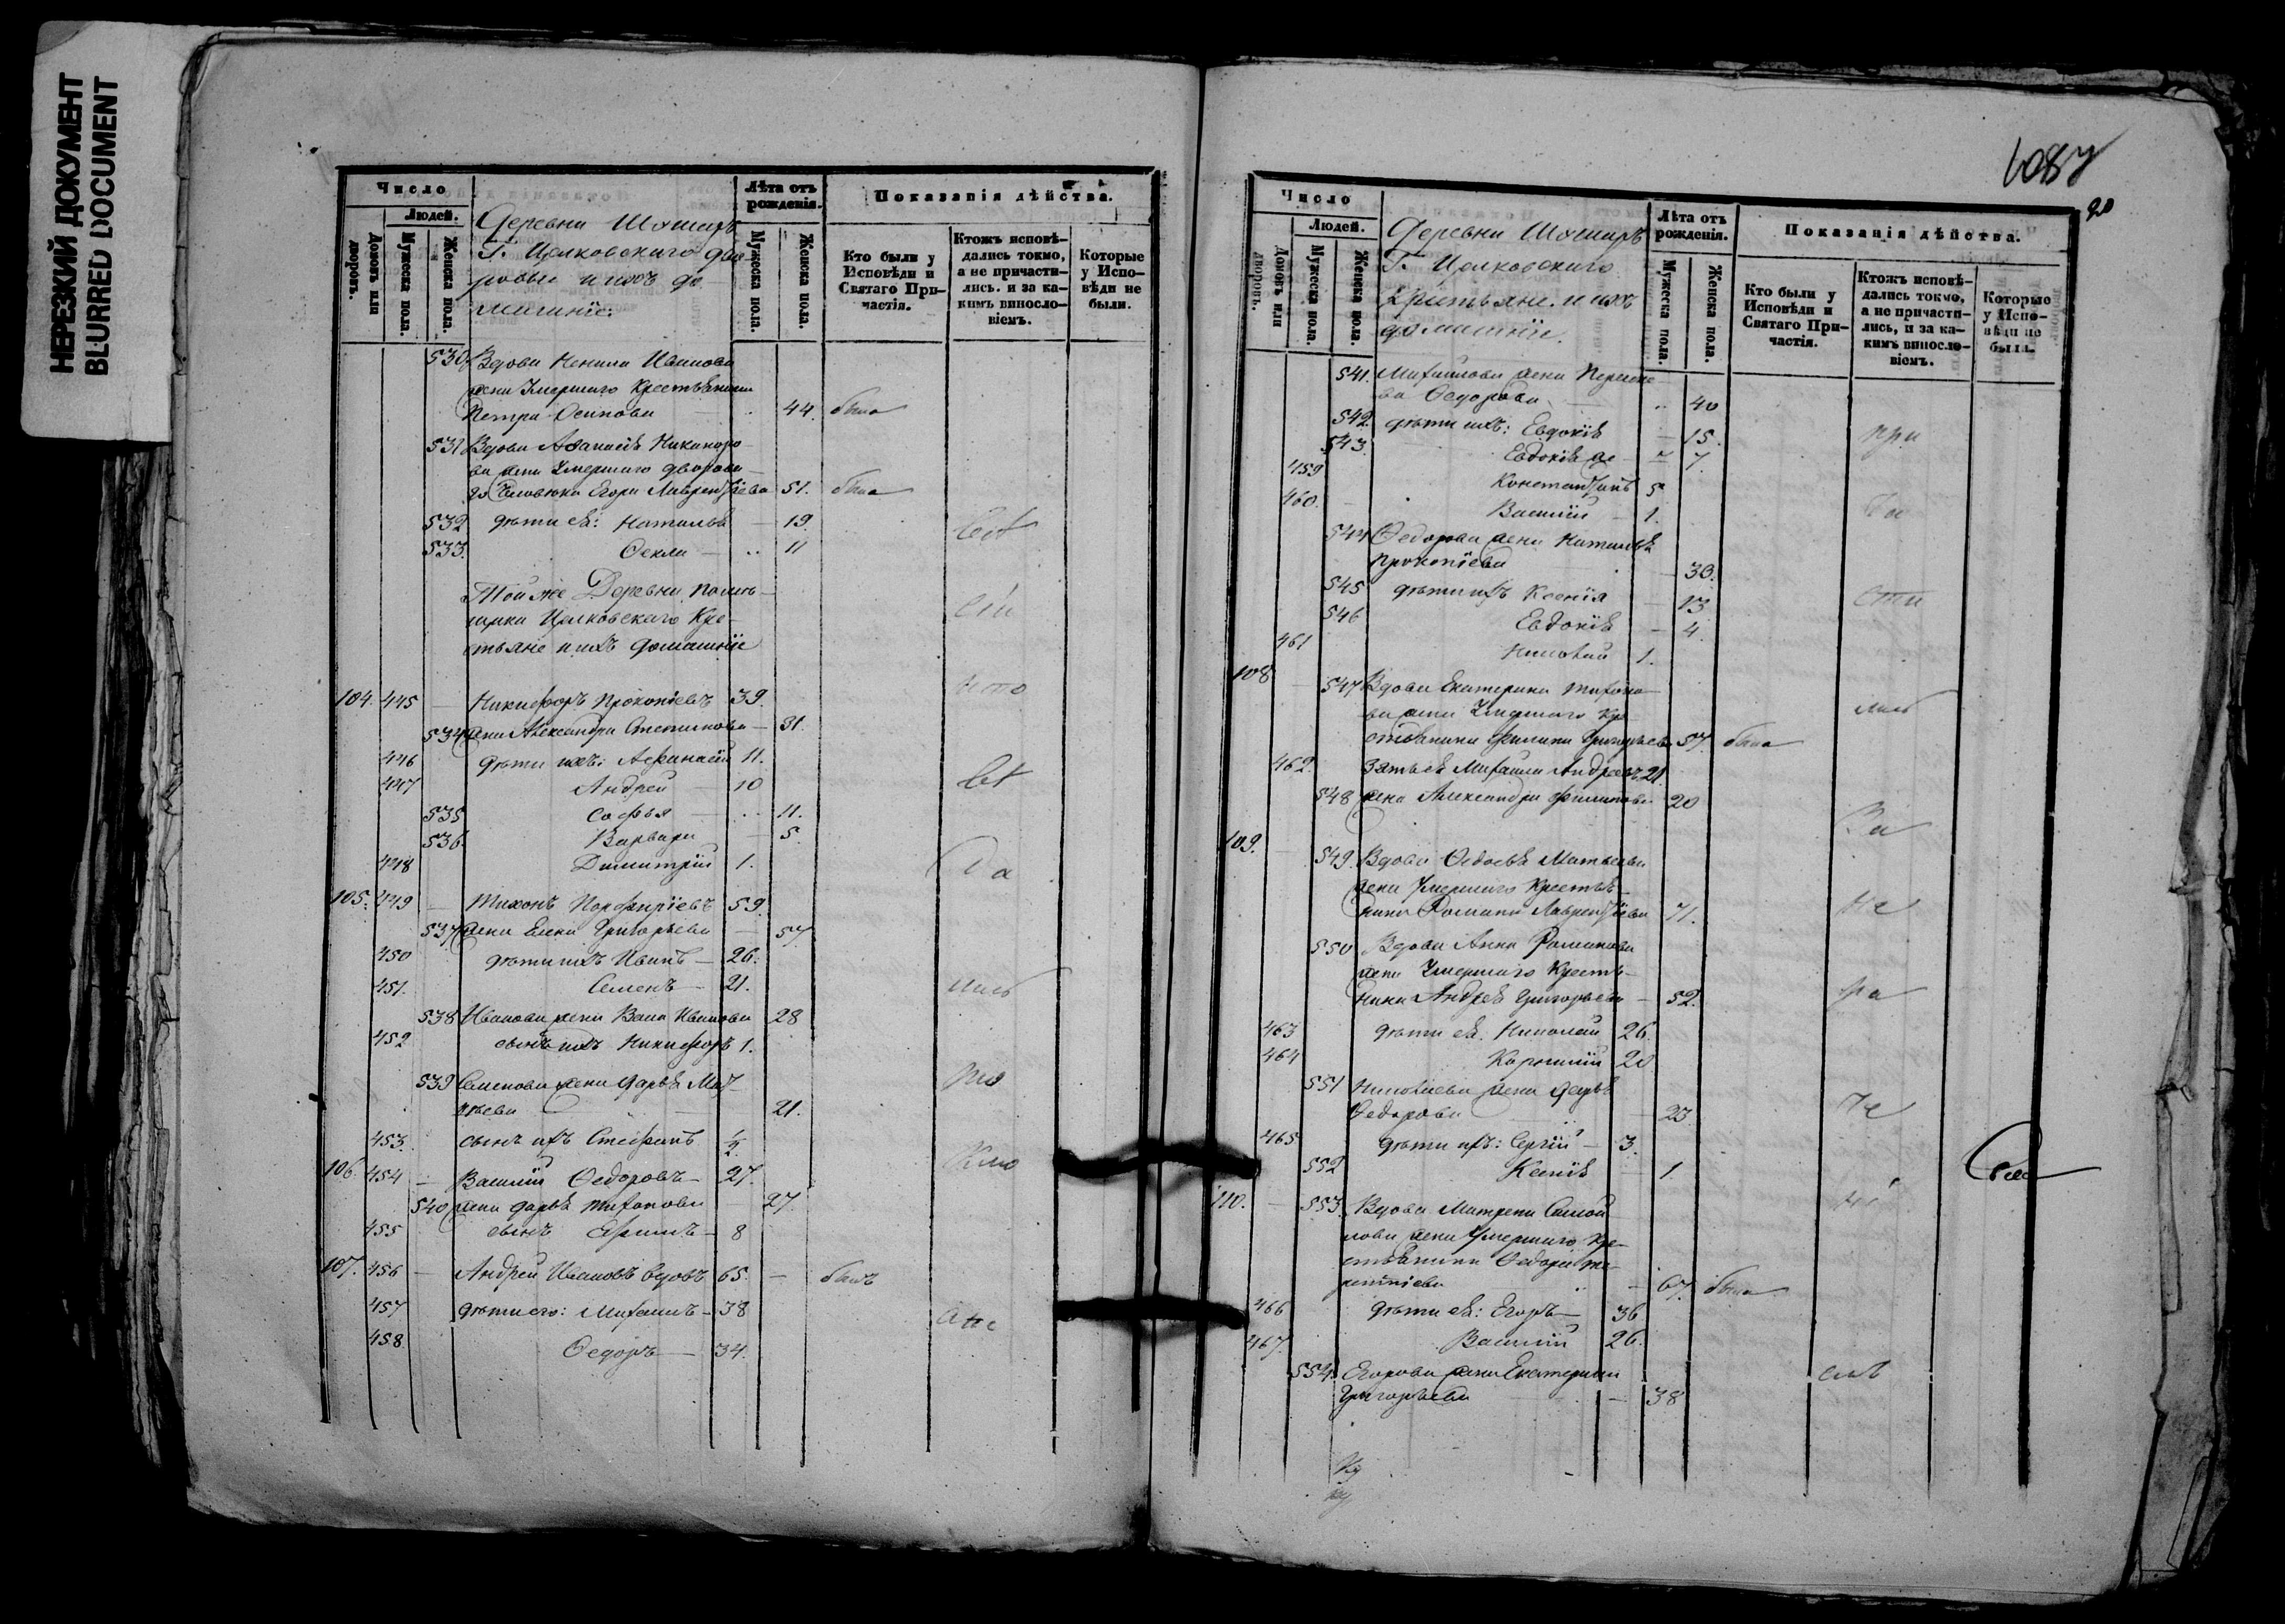 НЕРЕЗКИЙ ДОКУМЕНТ
BLURRED DOCUMENT
Число
Людей.
Домовъ или дворовъ.
Мужеска пола.
Женска пола.
Деревни
Г. дво
ровые и ихъ до
машніе.
Лѣта отъ рожденія.
Мужеска пола.
Женска пола.
Показанія дѣйства.
Кто были у Исповѣди и Святаго Причастія.
Ктожъ исповѣ-
дались токмо,
а не причасти-
лись. и за ка-
кимъ виносло-
віемъ.
Которые
у Испо-
вѣди не
были.
530 Вдова Ненила Иванова
жена Умершаго Крестьянина
Петра Осипова 44 была
531 Вдова Никаноро
ва жена Умершаго дворова
го Человека Егора Лаврентіева 51. была
532 дѣти ея: Наталья 19.
533. Фекла 11
Той же Деревни помѣ-
щика Кре-
стьяне и ихъ домашніе
104. 445 Никифоръ Прокопіевъ 39.
534 жена Александра Степанова 31.
446 дѣти ихъ: Афанасій 11.
447 Андрей 10
535 Софья 11.
536. Варвара 5.
448 Димитрій 1.
105. 449 Тихонъ Порфиріевъ 59.
537 жена Елена Григорьева 57.
450 дѣти ихъ Иванъ 26.
451. Семенъ 21.
538 Иванова жена Иванова 28
452 сынъ ихъ Никифоръ 1.
539 Семенова жена Дарья Мат-
вѣева 21.
453. сынъ ихъ Стефанъ ½
106. 454 Василій Федоровъ 27.
540 жена Дарья Тихонова 27.
455 сынъ Ефимъ 8
107. 456 Андрей Ивановъ вдовъ 65. былъ
457 дѣти его: Михаилъ 38
458. Федоръ 34.
1087
20
Число
Людей.
Домовъ или дворовъ.
Мужеска пола.
Женска пола.
Деревни
Г.
Крестьяне. и ихъ
домашніе.
Лѣта отъ рожденія.
Мужеска пола.
Женска пола.
Показанія дѣйства.
Кто были у Исповѣди и Святаго Причастія.
Ктожъ исповѣ-
дались токмо,
а не причасти-
лись, и за ка-
кимъ виносло-
віемъ.
Которые
у Испо-
вѣди не
были.
541. Михайлова жена
ва Федорова 40
542. дѣти ихъ: Евдокія 15.
543. Евдокія же 7.
459 Константинъ 5
460. Василій 1.
544 Федорова жена Наталья
Прокопіева 30.
545 дѣти ихъ Ксенія 13
546 Евдокія 4.
461 Николай 1.
108 547 Вдова Екатерина Тихоно
ва жена Умершаго Кре
стьянина Филипа Григорьева 57. была
462. Зять ея Михаила Андреевъ 21
548 жена Александра Филипова 20
109. 549. Вдова Федосья Матвеева
жена Умершаго Крестья-
нина Романа Лаврентіева 71.
550 Вдова Анна Романова
жена Умершаго Крестья-
нина Андрея Григорьева 52.
463 дѣти ея. Николай 26.
464 Корнилій 20
551 Николаева жена Дарья
Федорова 23
465 дѣти ихъ: Сергій 3.
552 Ксенія 1.
110. 553. Вдова Матрена Самой
лова жена Умершаго Кре-
стьянина Федора Те-
рентіева 67. была
466 дѣти ея: Егоръ 36
467. Василій 26.
554. Егорова жена Екатерина
Григорьева 38